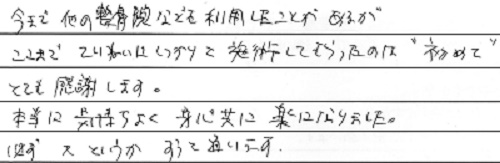 今まで他の整骨院なども利用したことがあるが
ここまでていねいにしっかりと施術してもらったのは"初めて"
とても感謝します。
本当に気持ちよく身心共に楽になりました。
というか ずっと通います.